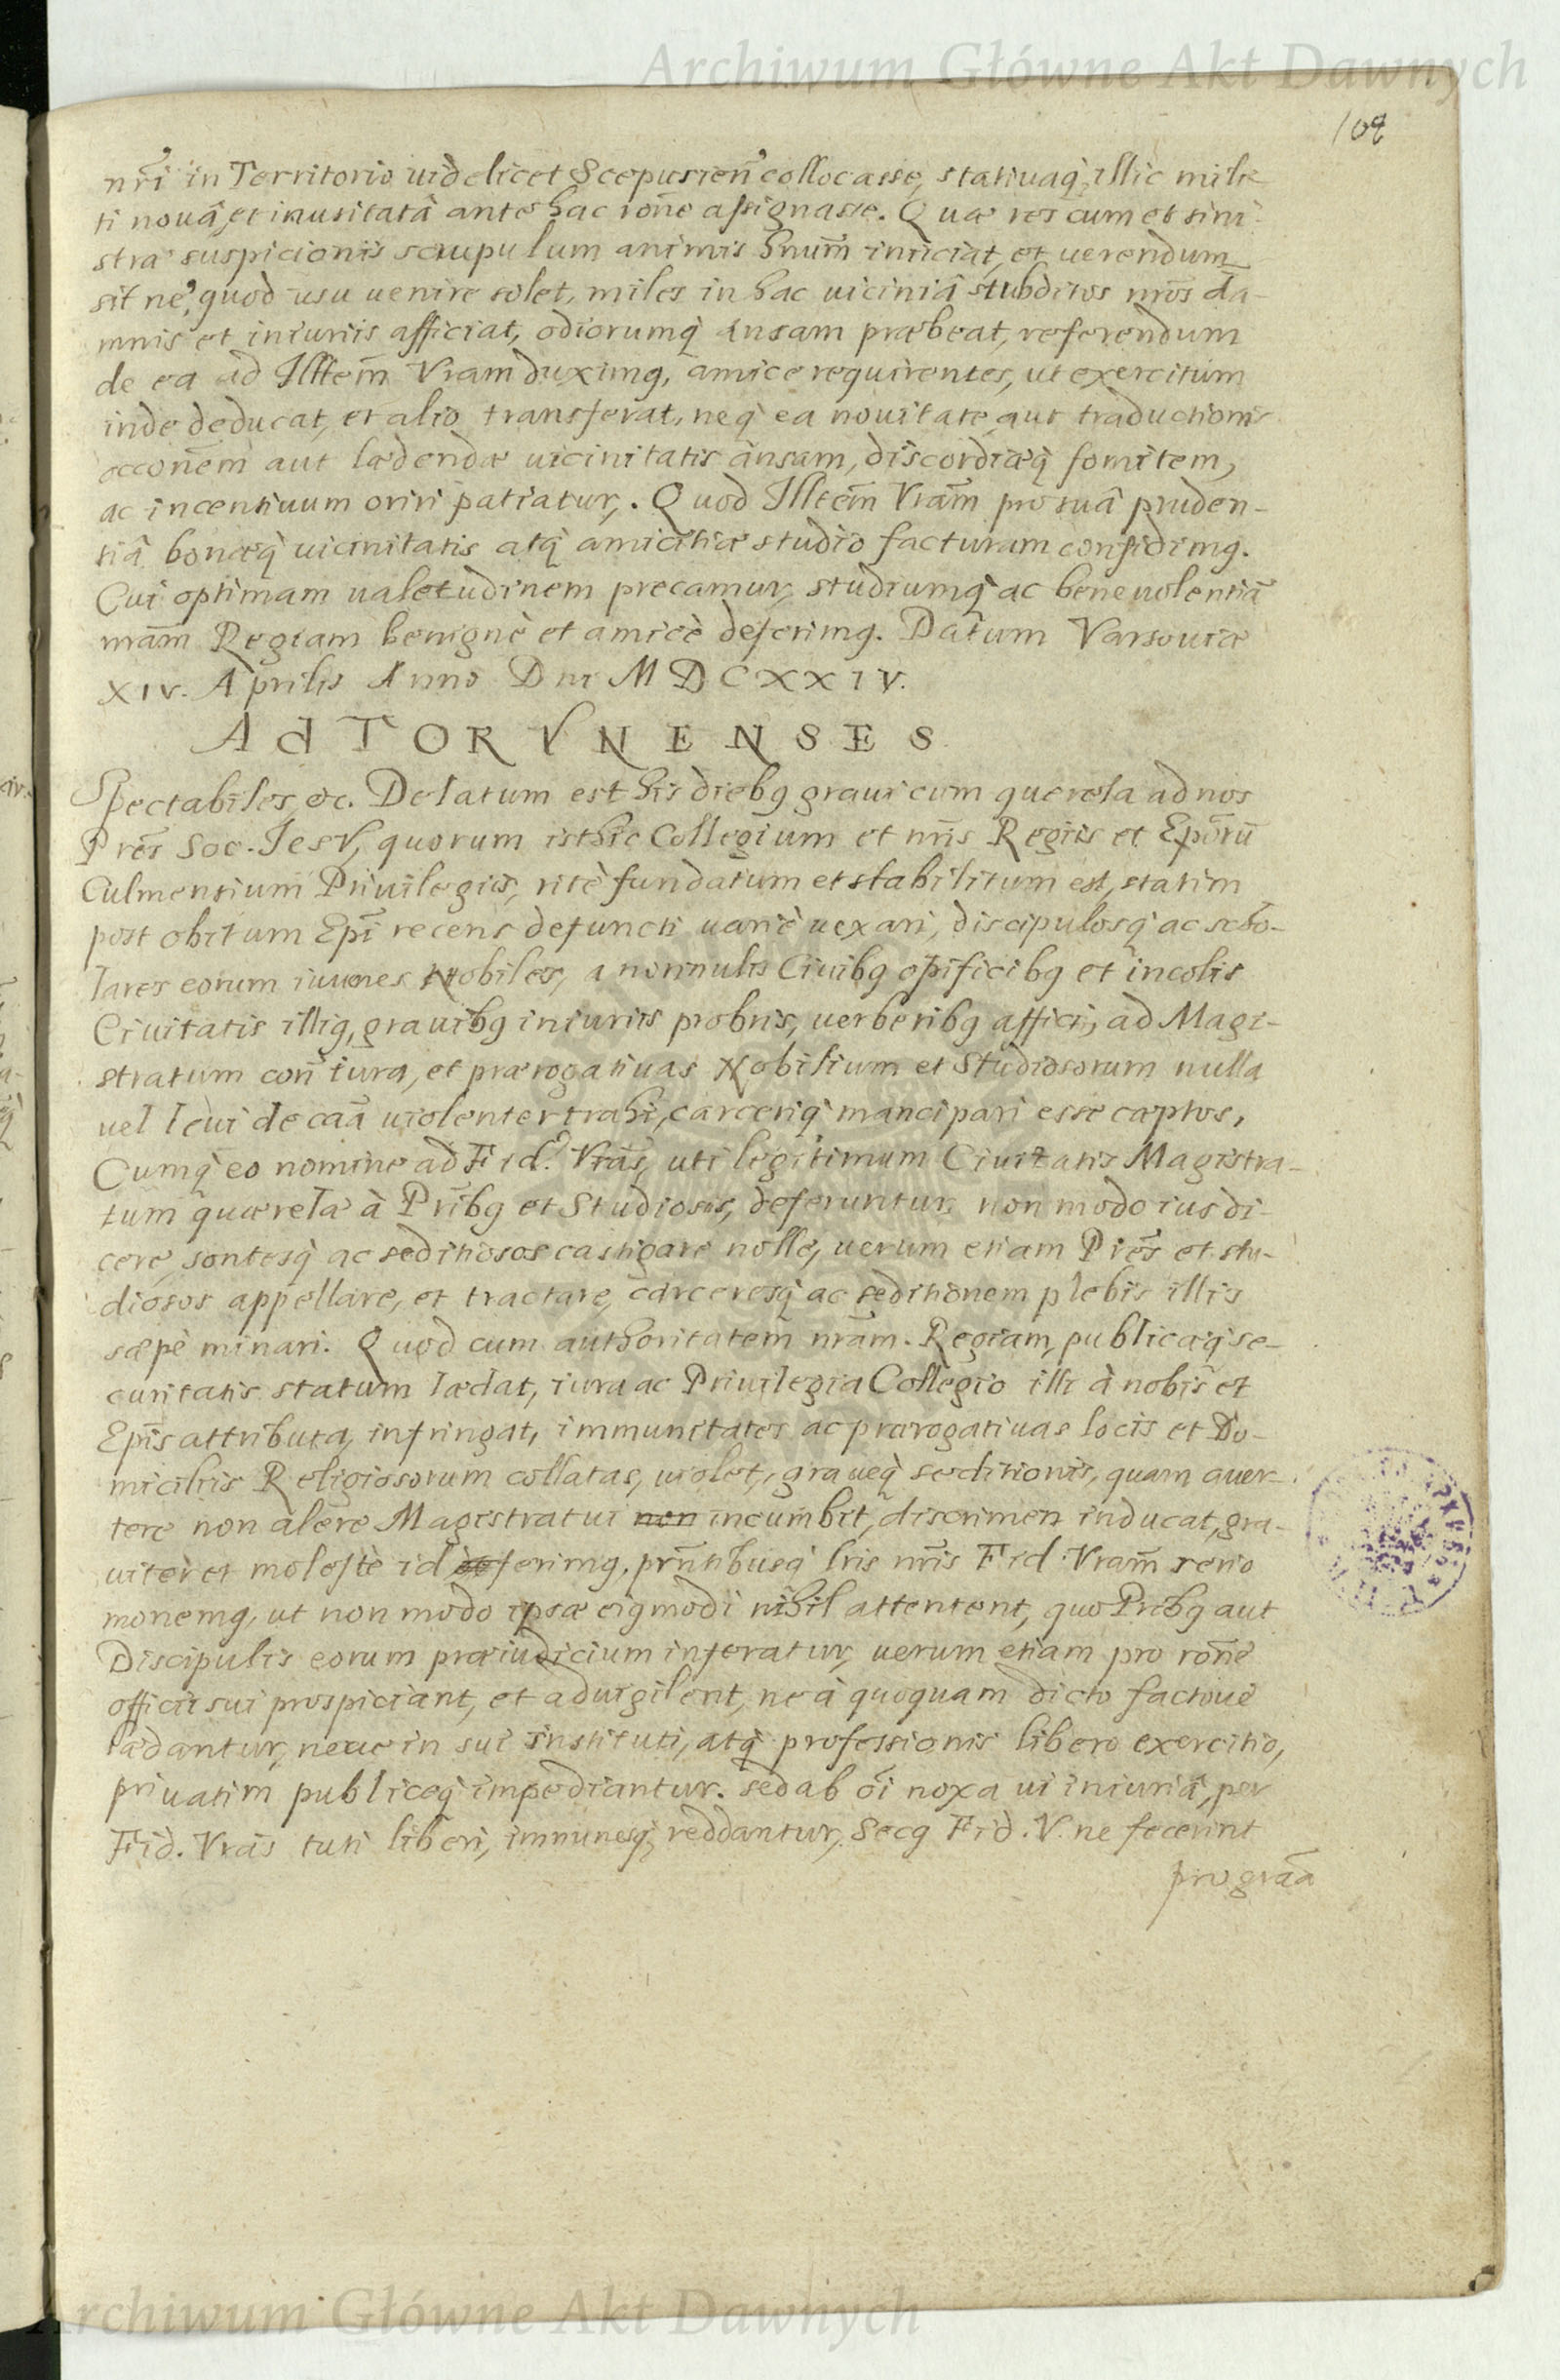 Archiwum Główne Akt Dawnych
109
nr̃i in Territorio uidelicet Scepusien̄ collocasse, statiuaq̀ illic mili-
ti nouâ, et inusitatâ ante hac rone assignasse. Quæ res cum et sini-
stræ suspicionis scrupulum animis hnum̄ iniiciat, et uerendum
sit ne, quod usu uenire solet, miles in hac uiciniâ subditos nros da-
mnis et iniuriis afficiat, odiorumq̀ ansam præbeat, referendum
de ea ad Illtem̄ Vram duximq, amice requirentes, ut exercitum
inde deducat, et alio transferat, neq̀ ea nouitate aut traductionis
occonem aut lædendæ uicinitatis ansam, discordiæq̀ fomitem,
ac incentiuum oriri patiatur. Quod Illtem̄ Vram̄ pro suâ pruden-
tiâ bonæq̀ uicinitatis atq̀ amicitiæ studio facturam confidimq.
Cui optimam ualetudinem precamur, studiumq̀ ac beneuolentiā
nram̄ Regiam benignè et amicè deferimq. Datum Varsouiæ
XIV. Aprilis Anno Dni MDCXXIV.
Ad TORVNENSES
Spectabiles, &c. Delatum est his diebq graui cum querela ad nos
Pres̄ Soc. JesV, quorum isthic Collegium et nris̄ Regiis et Eporū
Culmensium Priuilegiis, ritè fundatum et stabilitum est, statim
post obitum Epī recens defuncti uariè uexari, discipulosq̀ ac scho-
lares eorum iuuenes Nobiles, a nonnulis Ciuibq opificibq et incolis
Ciuitatis illiq, grauibq iniuriis probris, uerberibq affici, ad Magi-
stratum con̄ iura, et prærogatiuas Nobilium et Studiosorum nulla
uel leui de caā uiolenter trahi, carceriq̀ mancipari esse captos,
Cumq̀ eo nomine ad Fid. Vras̄, uti legitimum Ciuitatis Magistra-
tum quærelæ à Prībq et Studiosis, deferuntur, non modo ius di-
cere, sontesq̀ ac seditiosos castigare nolle, uerum etiam Pres̄ et stu-
diosos appellare, et tractare, carceresq̀ ac seditionem plebis illis
sæpè minari. Quod cum authoritatem nram̄. Regiam, publicæq̀ se-
curitatis statum lædat, iura ac Priuilegia Collegio illi à nobis et
Epis̄ attributa, infringat, immunitates ac prærogatiuas locis et Do-
miciliis Religiosorum collatas, uiolet, graueq̀ seditionis, quam auer-
tere non alere Magistratui non incumbit, discrimen inducat, gra-
uiter et molestè id ferimq. prn̄tibusq̀ lris nris̄ Fid. Vram̄ serio
monemq, ut non modo ipsæ eiqmodi nihil attentent, quo Pribq aut
Discipulis eorum præiudicium inferatur, uerum etiam pro rone
officii sui prospiciant, et aduigilent, ne à quoquam dicto factoue
lædantur, neue in sui instituti, atq̀ professionis libero exercitio,
priuatim publiceq̀ impediantur. sed ab oī noxa ui iniuriâ, per
Fid. Vras̄ tuti liberi, immunesq̀, reddantur, Secq Fid. V. ne fecerint
pro graā
Archiwum Główne Akt Dawnych